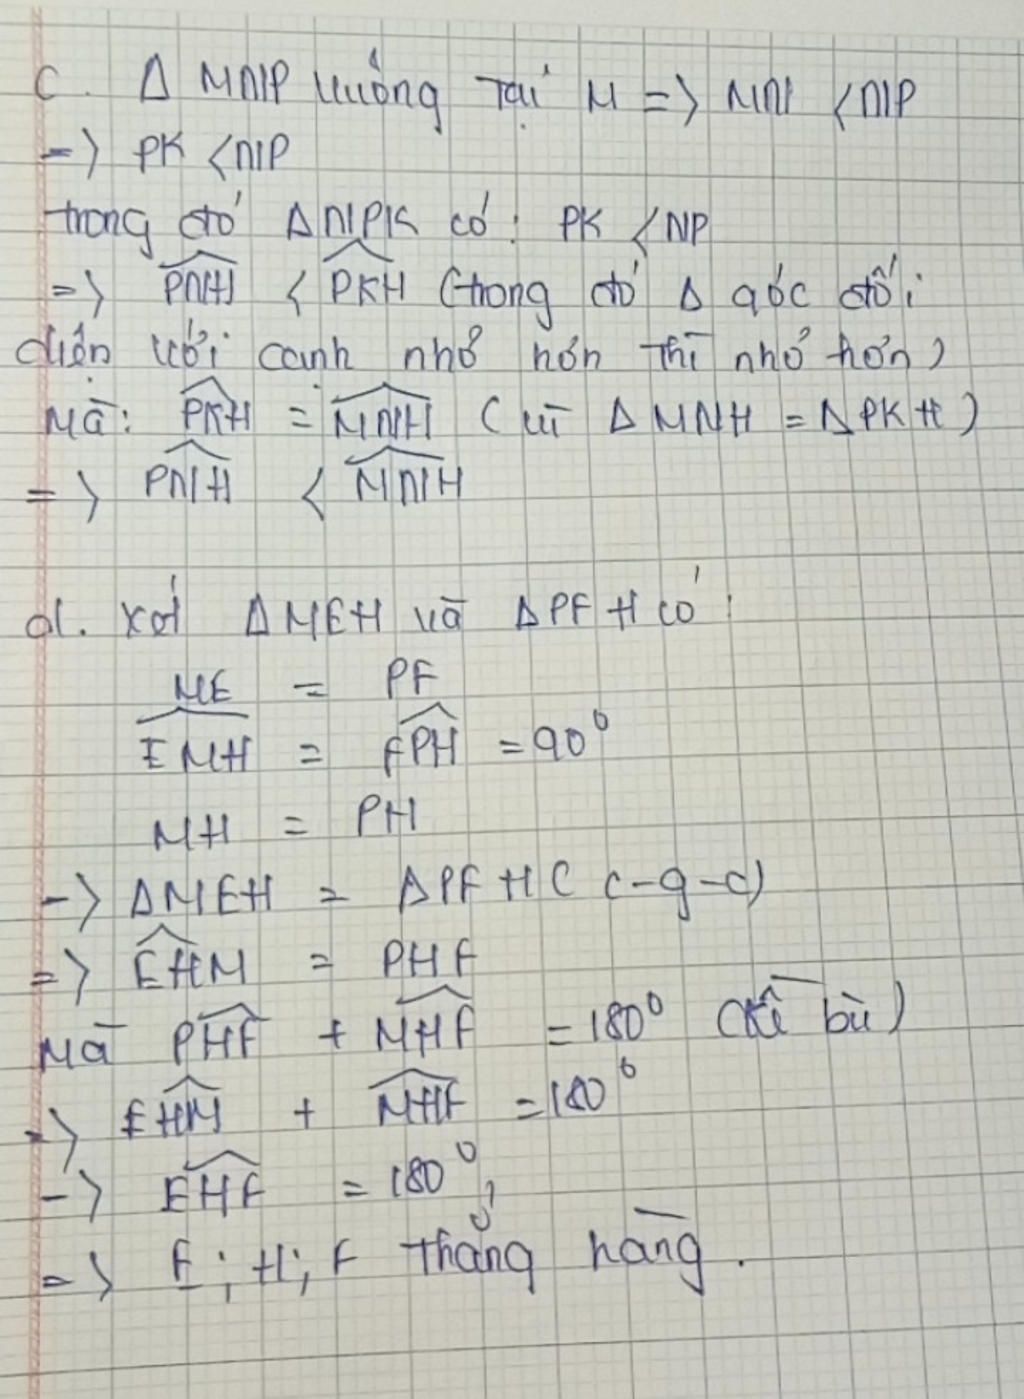 C. Δ MNP vuông tại M => MN < NP
=> PK < NP
trong đó ΔNPK có: PK < NP
=> PNH < PKH (trong đó Δ góc đối
diện với cạnh nhỏ hơn thì nhỏ hơn)
Mà: PKH = MNH (vì Δ MNH = Δ PKH)
=> PNH < MNH
d. Xét ΔMEH và ΔPFH có:
ME = PF
EMH = FPH = 90°
MH = PH
-> ΔMEH = ΔPFH C c-g-c)
=> EHM = PHF
Mà PHF + MHF = 180° (kề bù)
-> EHM + MHF = 180°
-> EHF = 180°
=> E; H; F thẳng hàng.